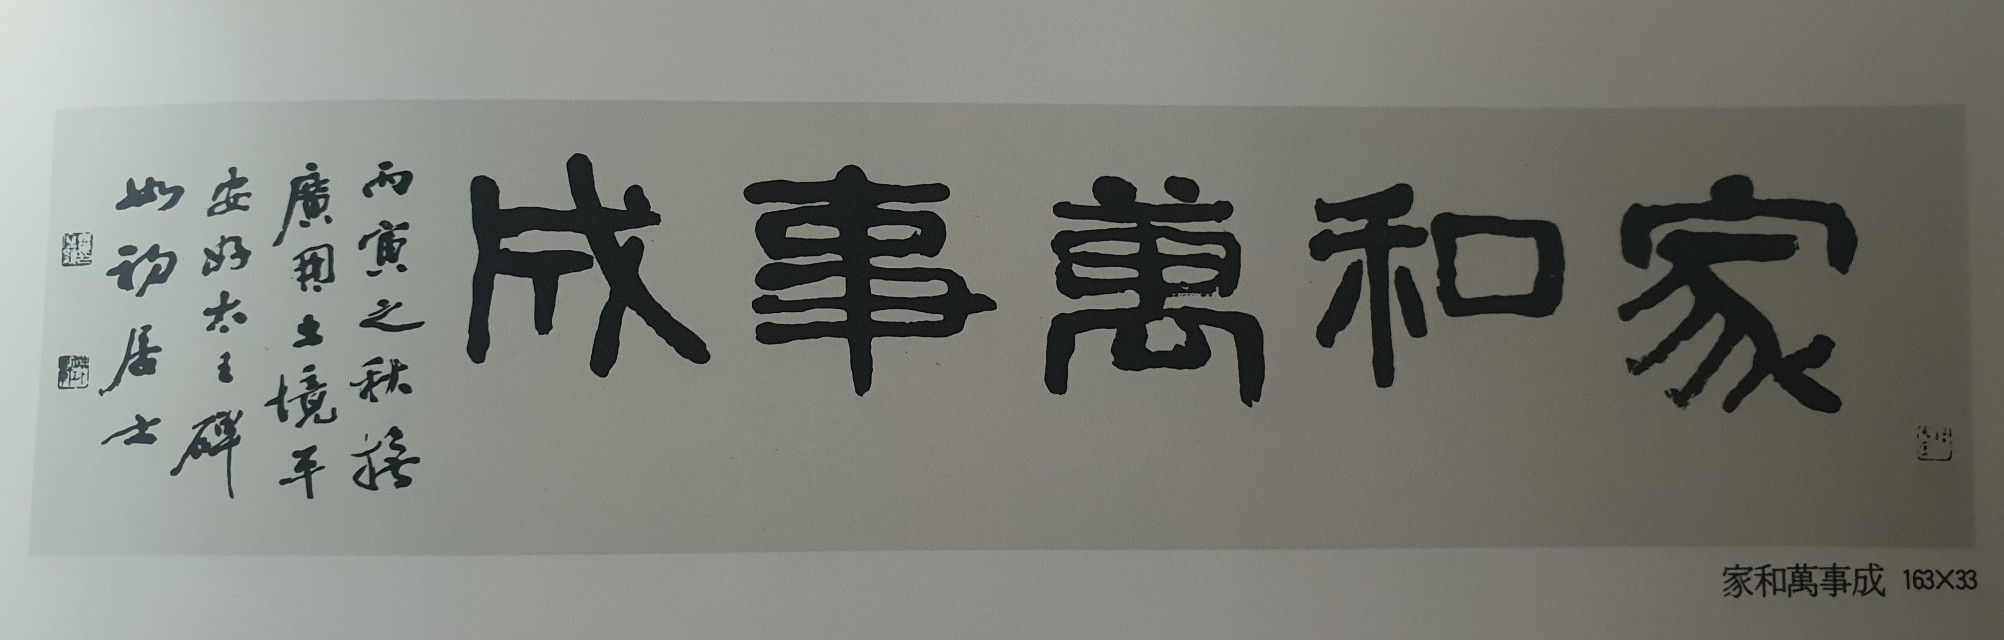 家和萬事成
丙寅之秋撫
廣開土境平
安好太王碑
如初居士
家和萬事成 163×33